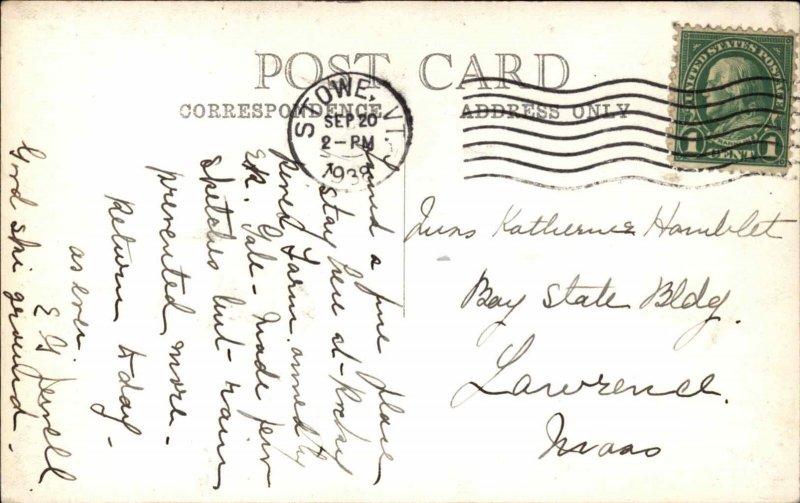 POST CARD
CORRESPONDENCE
ADDRESS ONLY
STOWE, VT.
SEP 20
2-PM
UNITED STATES POSTAGE
FRANKLIN
1 CENT 1
Found a fine place
to stay here at
Farm owned by
E.R. Gale - Made few
sketches but rain
prevented more -
Return today -
as ever
E G Jewell
Good ski ground.
Miss Katherine Hamblet
Bay State Bldg.
Lawrence.
Mass